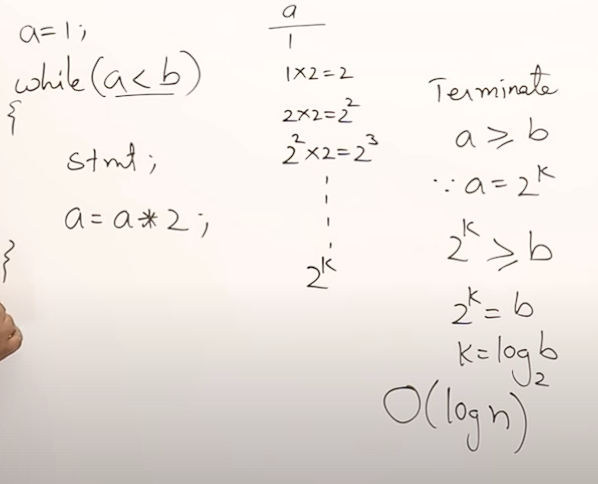 a=1;
while(a<b)
{
stmt;
a=a*2;
}
a
1
1×2=2
2×2=2²
2²×2=2³
2ᵏ
Terminate
a≥b
∵a=2ᵏ
2ᵏ≥b
2ᵏ=b
k=log₂b
O(logn)